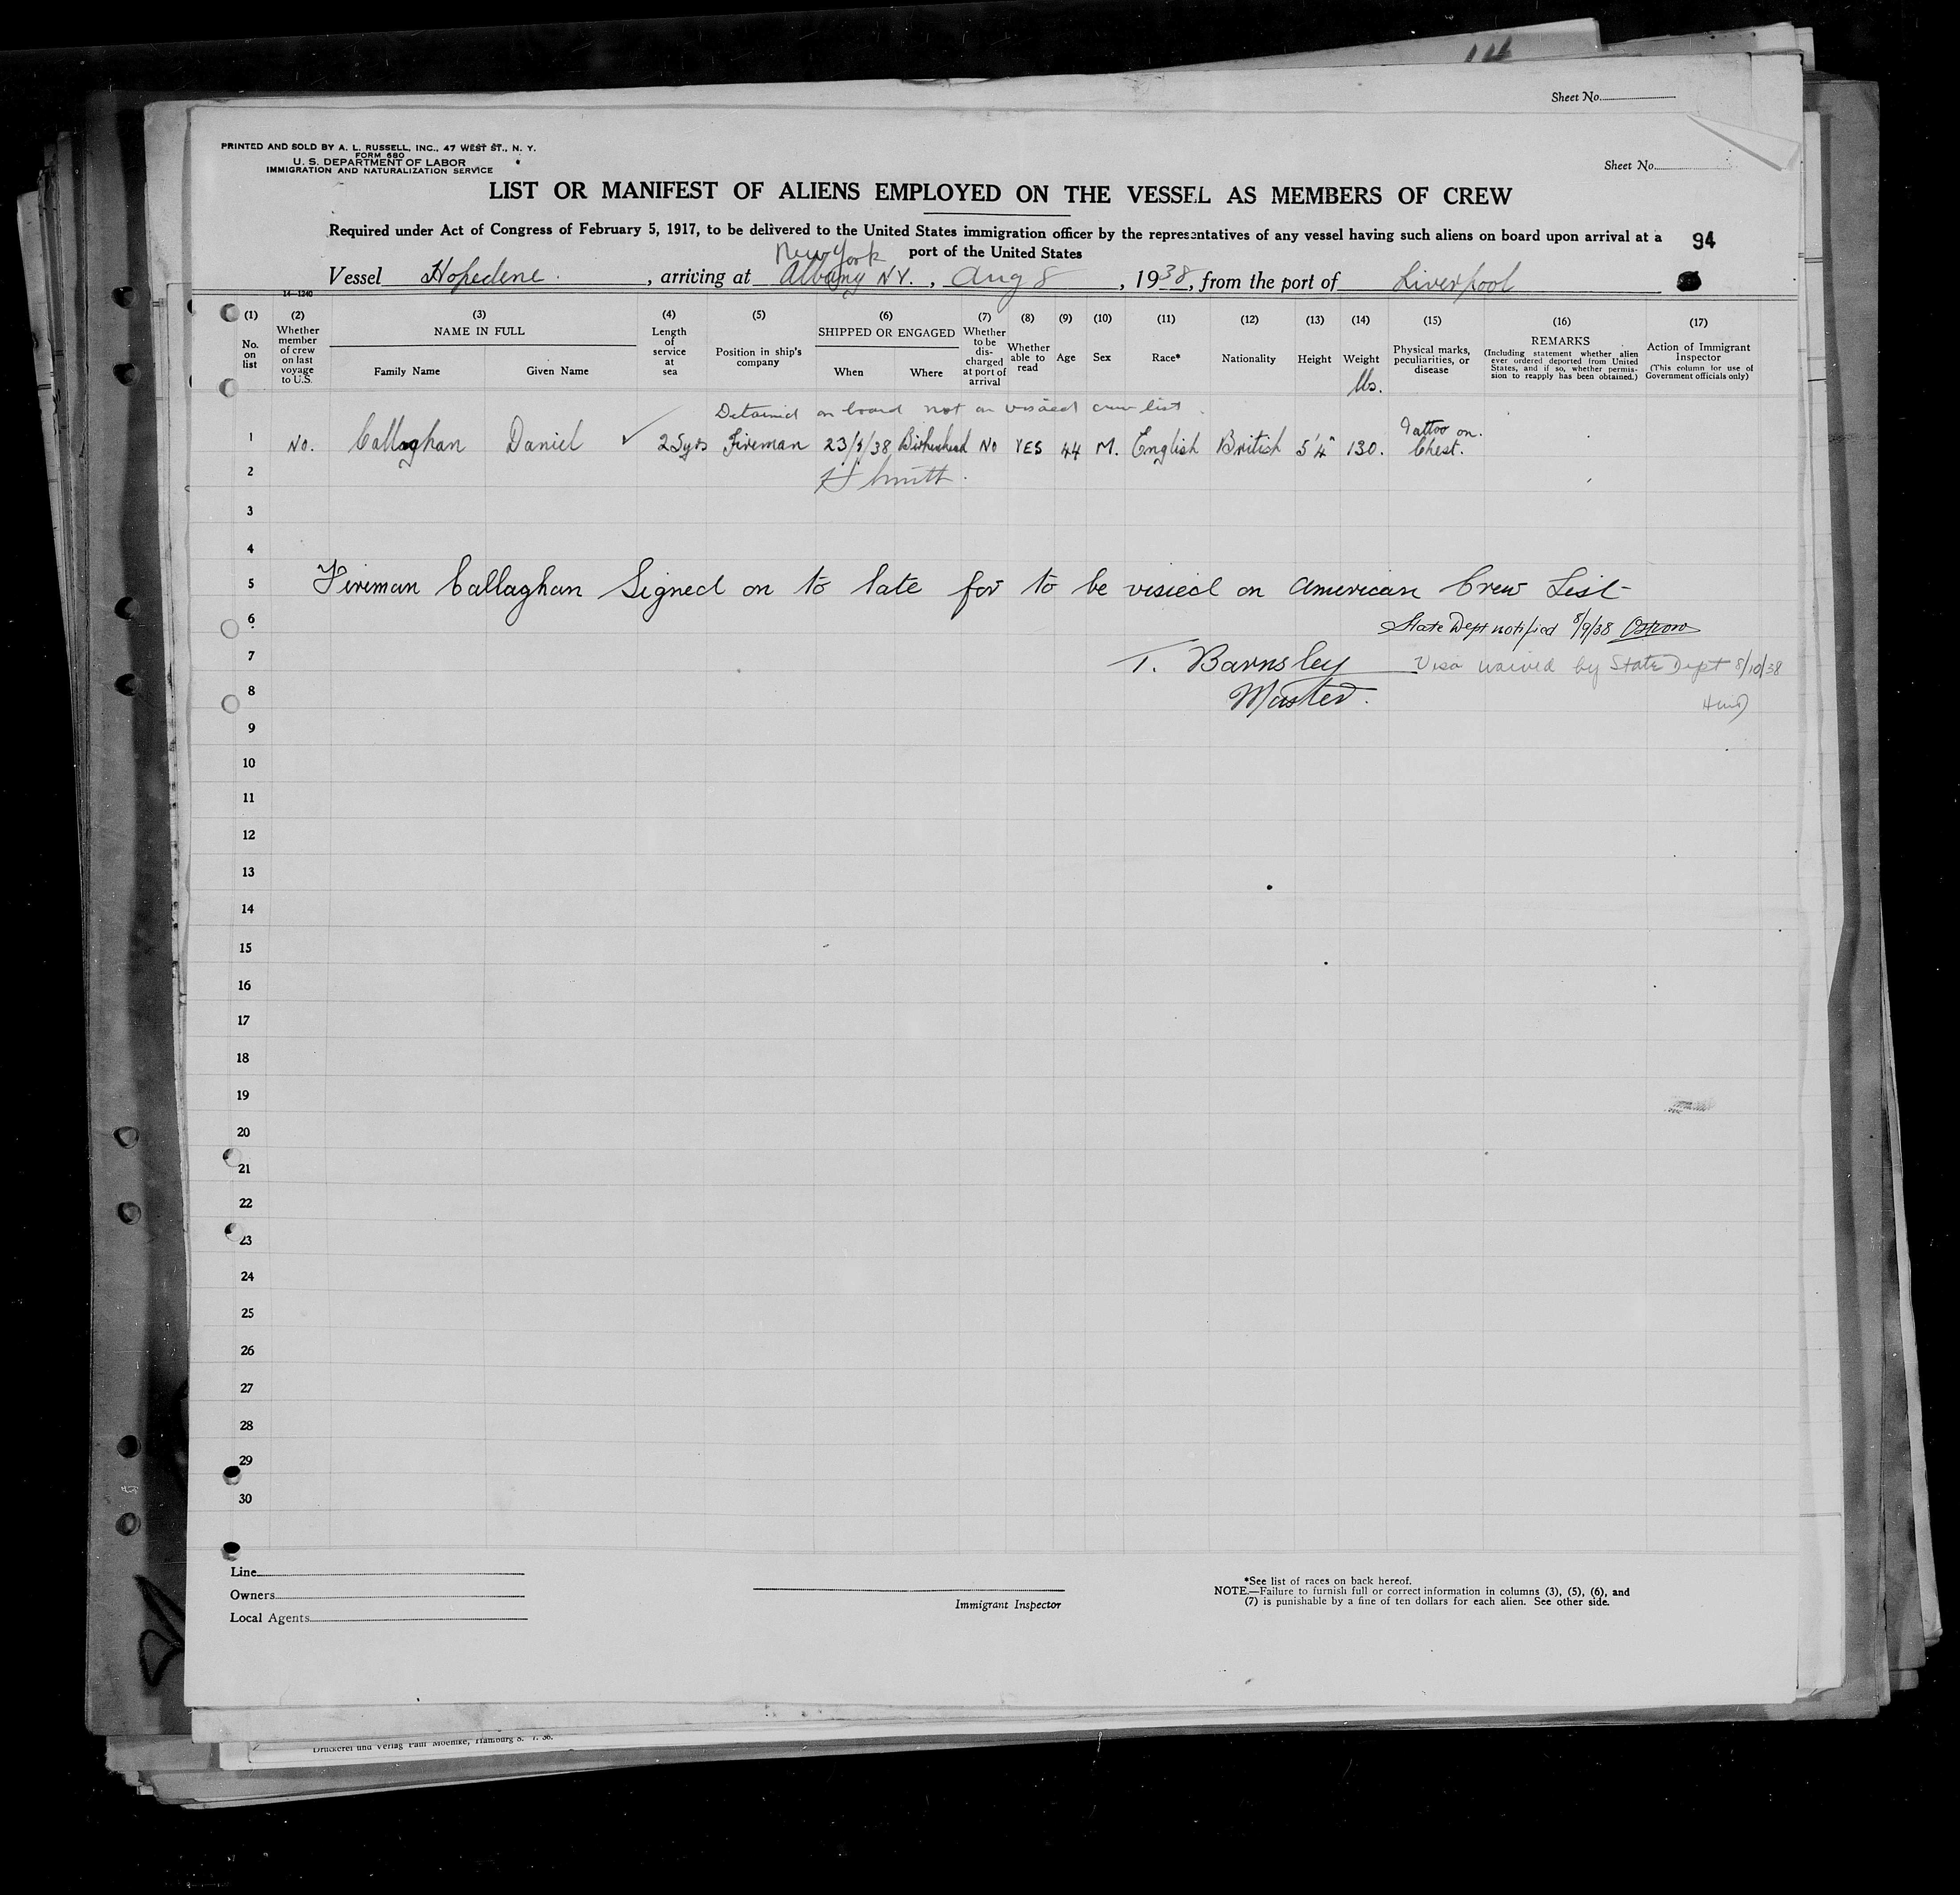 Sheet No.
PRINTED AND SOLD BY A. L. RUSSELL, INC., 47 WEST ST., N. Y.
FORM 680
U. S. DEPARTMENT OF LABOR
IMMIGRATION AND NATURALIZATION SERVICE
Sheet No.
LIST OR MANIFEST OF ALIENS EMPLOYED ON THE VESSEL AS MEMBERS OF CREW
Required under Act of Congress of February 5, 1917, to be delivered to the United States immigration officer by the representatives of any vessel having such aliens on board upon arrival at a
port of the United States
94
New York
Vessel Hopedene, arriving at Albany NY., Aug 8, 1938, from the port of Liverpool
14-1240
(1) (2) (3) (4) (5) (6) (7) (8) (9) (10) (11) (12) (13) (14) (15) (16) (17)
No. on list
Whether member of crew on last voyage to U.S.
NAME IN FULL
Family Name
Given Name
Length of service at sea
Position in ship's company
SHIPPED OR ENGAGED
When
Where
Whether to be discharged at port of arrival
Whether able to read
Age
Sex
Race*
Nationality
Height
Weight
lbs.
Physical marks, peculiarities, or disease
REMARKS
(Including statement whether alien ever ordered deported from United States, and if so, whether permission to reapply has been obtained.)
Action of Immigrant Inspector
(This column for use of Government officials only)
Detained on board not on visaed crew list
1 No. Callaghan Daniel ✓ 25yrs Fireman 23/7/38 Birkenhead No YES 44 M. English British 5'4" 130. Tattoo on. Chest.
2 Smith
3
4
5 Fireman Callaghan Signed on to late for to be visied on American Crew List
6 State Dept notified 8/9/38
7 T. Barnsley Visa waived by State Dept 8/10/38
8 Master.
9
10
11
12
13
14
15
16
17
18
19
20
21
22
23
24
25
26
27
28
29
30
Line
Owners
Local Agents
Immigrant Inspector
*See list of races on back hereof.
NOTE.—Failure to furnish full or correct information in columns (3), (5), (6), and
(7) is punishable by a fine of ten dollars for each alien. See other side.
Druckerei und Verlag Paul Moehlke, Hamburg 8. 7. 36.